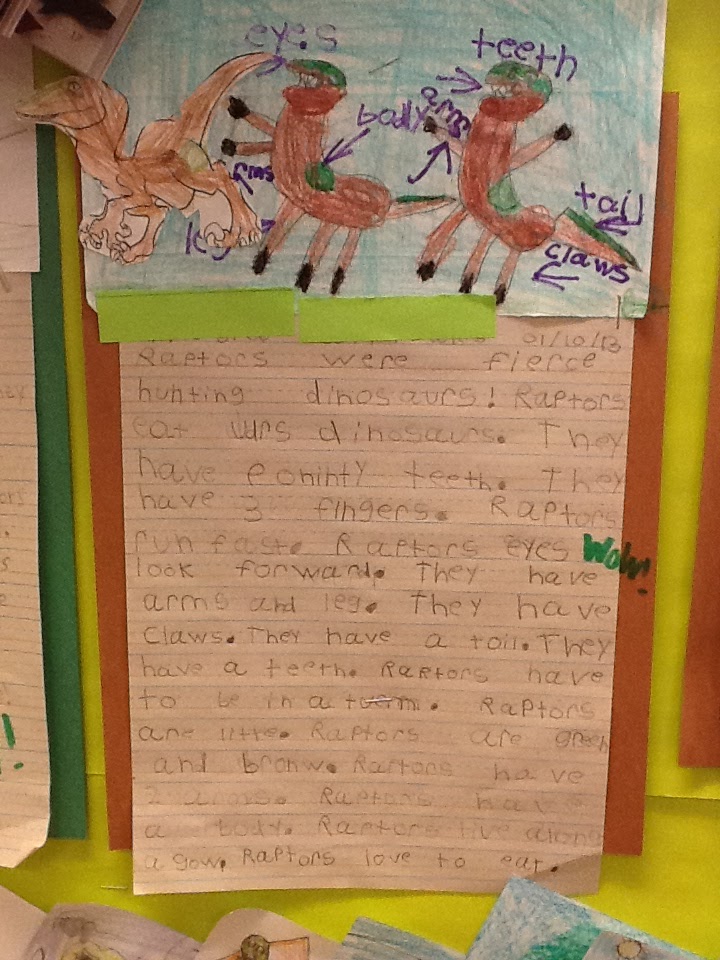 eyes
teeth
arms
body
arms
tail
leg
claws
01/10/13
Raptors were fierce
hunting dinosaurs! Raptors
eat dinosaurs. They
have eohinty teeth. They
have 3 fingers. Raptors
run fast. Raptors eyes Wow!
look forward. They have
arms and leg. They have
claws. They have a tail. They
have a teeth. Raptors have
to be in a team. Raptors
are litte. Raptors are green
and bronw. Raptors have
2 arms. Raptors have
a body. Raptors live along
a gow. Raptors love to eat.